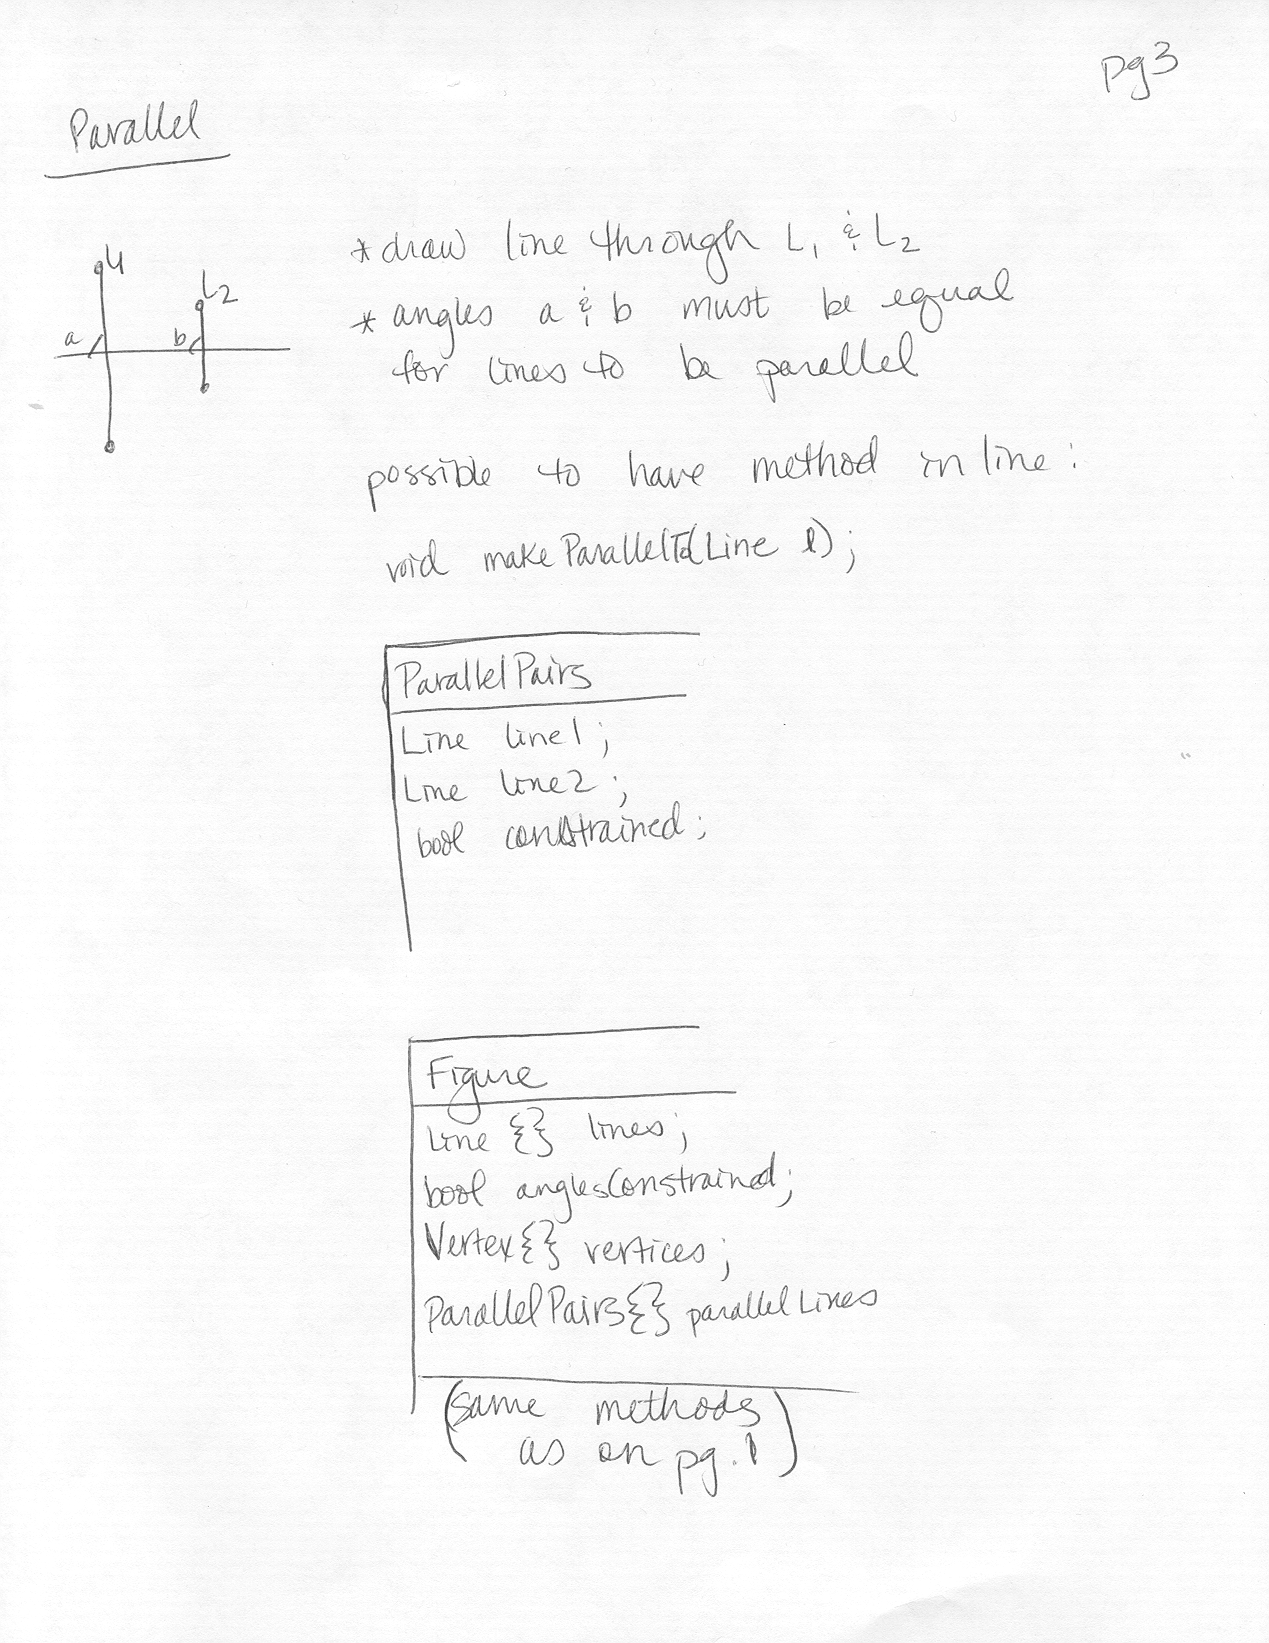 pg3
Parallel
L1
L2
a
b
* draw line through L1 & L2
* angles a & b must be equal
for lines to be parallel
possible to have method in line:
void makeParallelTo(Line l);
ParallelPairs
Line line1;
Line line2;
bool constrained;
Figure
Line {} lines;
bool anglesConstrained;
Vertex{} vertices;
ParallelPairs{} parallelLines
(same methods
as on pg.1)